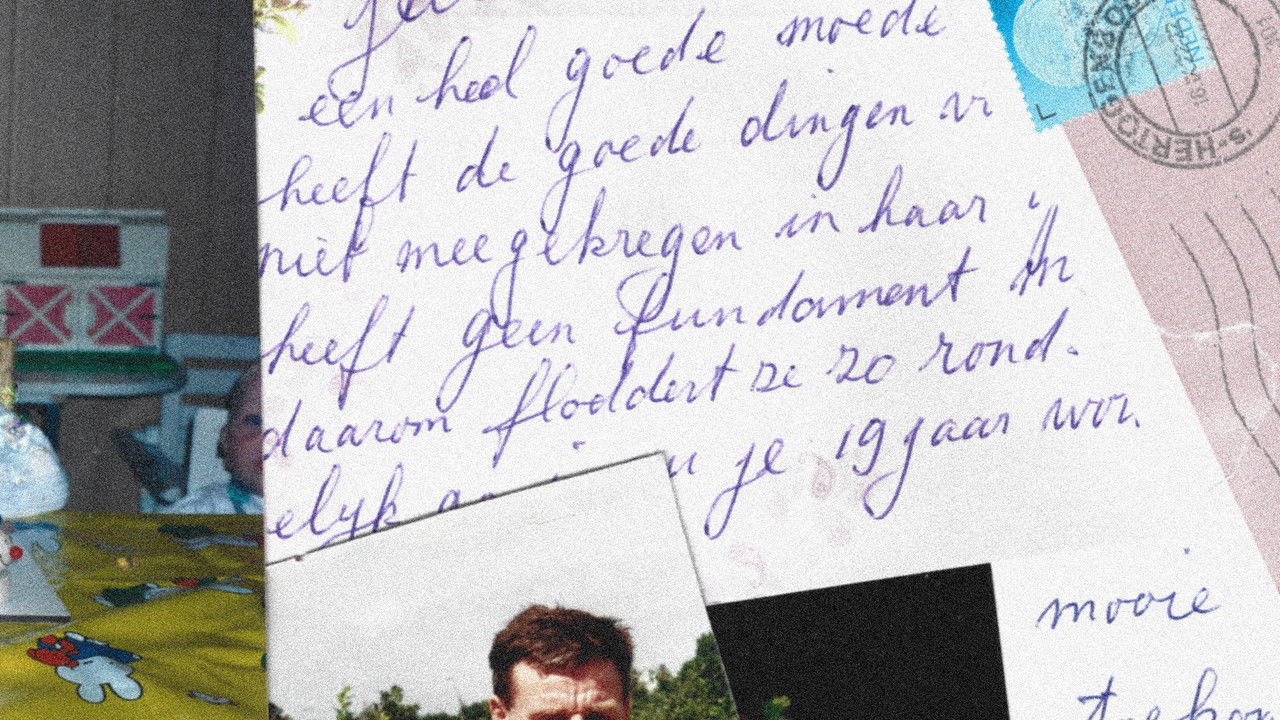 een heel goede moede
heeft de goede dingen
niet meegekregen in haar
heeft geen fundament in
daarom floddert ze zo rond.
elyk je 19 jaar wor
mooie
'S-HERTOGENBOSCH
L